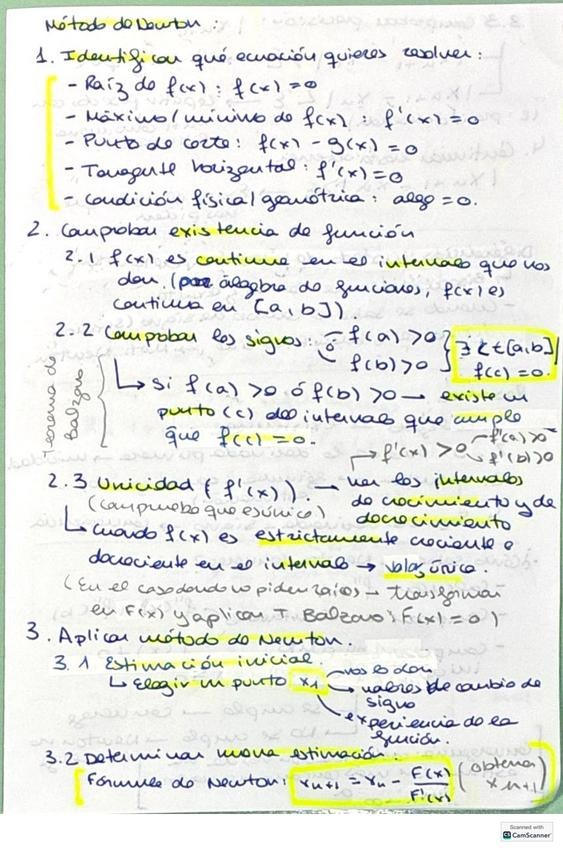 Método de Newton :
1. Identificar qué ecuación quieres resolver :
- Raíz de f(x) : f(x) = 0
- Máximo / mínimo de f(x) : f'(x) = 0
- Punto de corte : f(x) - g(x) = 0
- Tangente horizontal : f'(x) = 0
- Condición física / geométrica : algo = 0.
2. Comprobar existencia de función
2.1 f(x) es continua en el intervalo que nos
dan. (por álgebra de funciones, f(x) es
continua en [a, b])
2.2 Comprobar los signos : f(a) > 0
f(b) > 0
∃ c ∈ [a, b] /
f(c) = 0.
Teorema de
Balzano
↳ si f(a) > 0 ó f(b) > 0 → existe un
punto (c) del intervalo que cumple
que f(c) = 0.
→ f'(x) > 0
f'(a) > 0
f'(b) > 0
2.3 Unicidad (f'(x)). → ver los intervalos
(comprueba que es único) de crecimiento y de
decrecimiento
↳ cuando f(x) es estrictamente creciente o
decreciente en el intervalo → valor único.
(En el caso donde no piden raíces → transformar
en F(x) y aplicar T. Balzano : F(x) = 0)
3. Aplicar método de Newton.
3.1 Estimación inicial.
↳ Elegir un punto x₁
→ nos lo dan
→ valores de cambio de
signo
→ experiencia de la
función.
3.2 Determinar nueva estimación.
Fórmula de Newton : xₙ₊₁ = xₙ - F(x) / F'(x) (obtener xₙ₊₁)
Scanned with
CS CamScanner